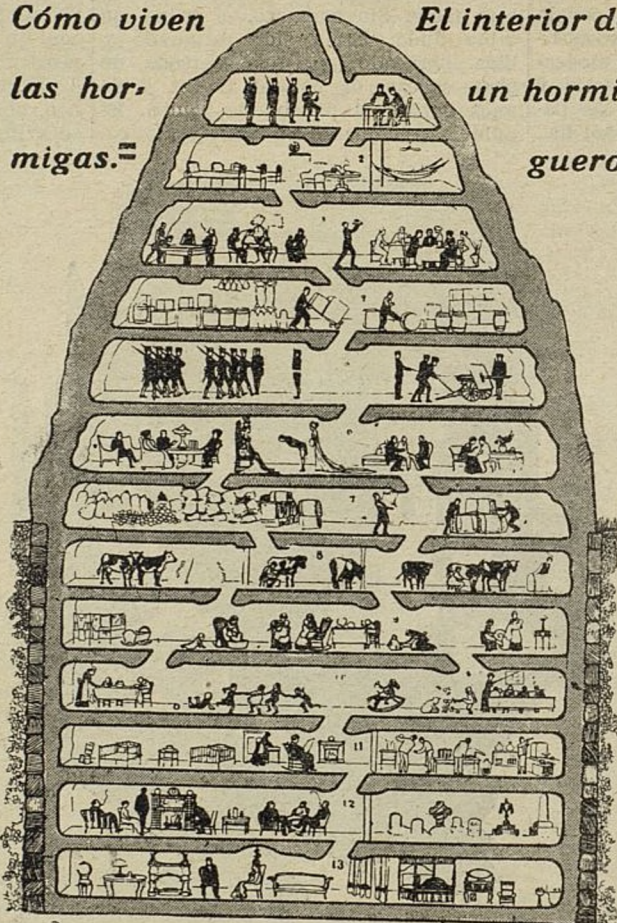 Cómo viven
las hor-
migas.=
El interior d
un hormi
guero
2
7
8
9
11
12
13